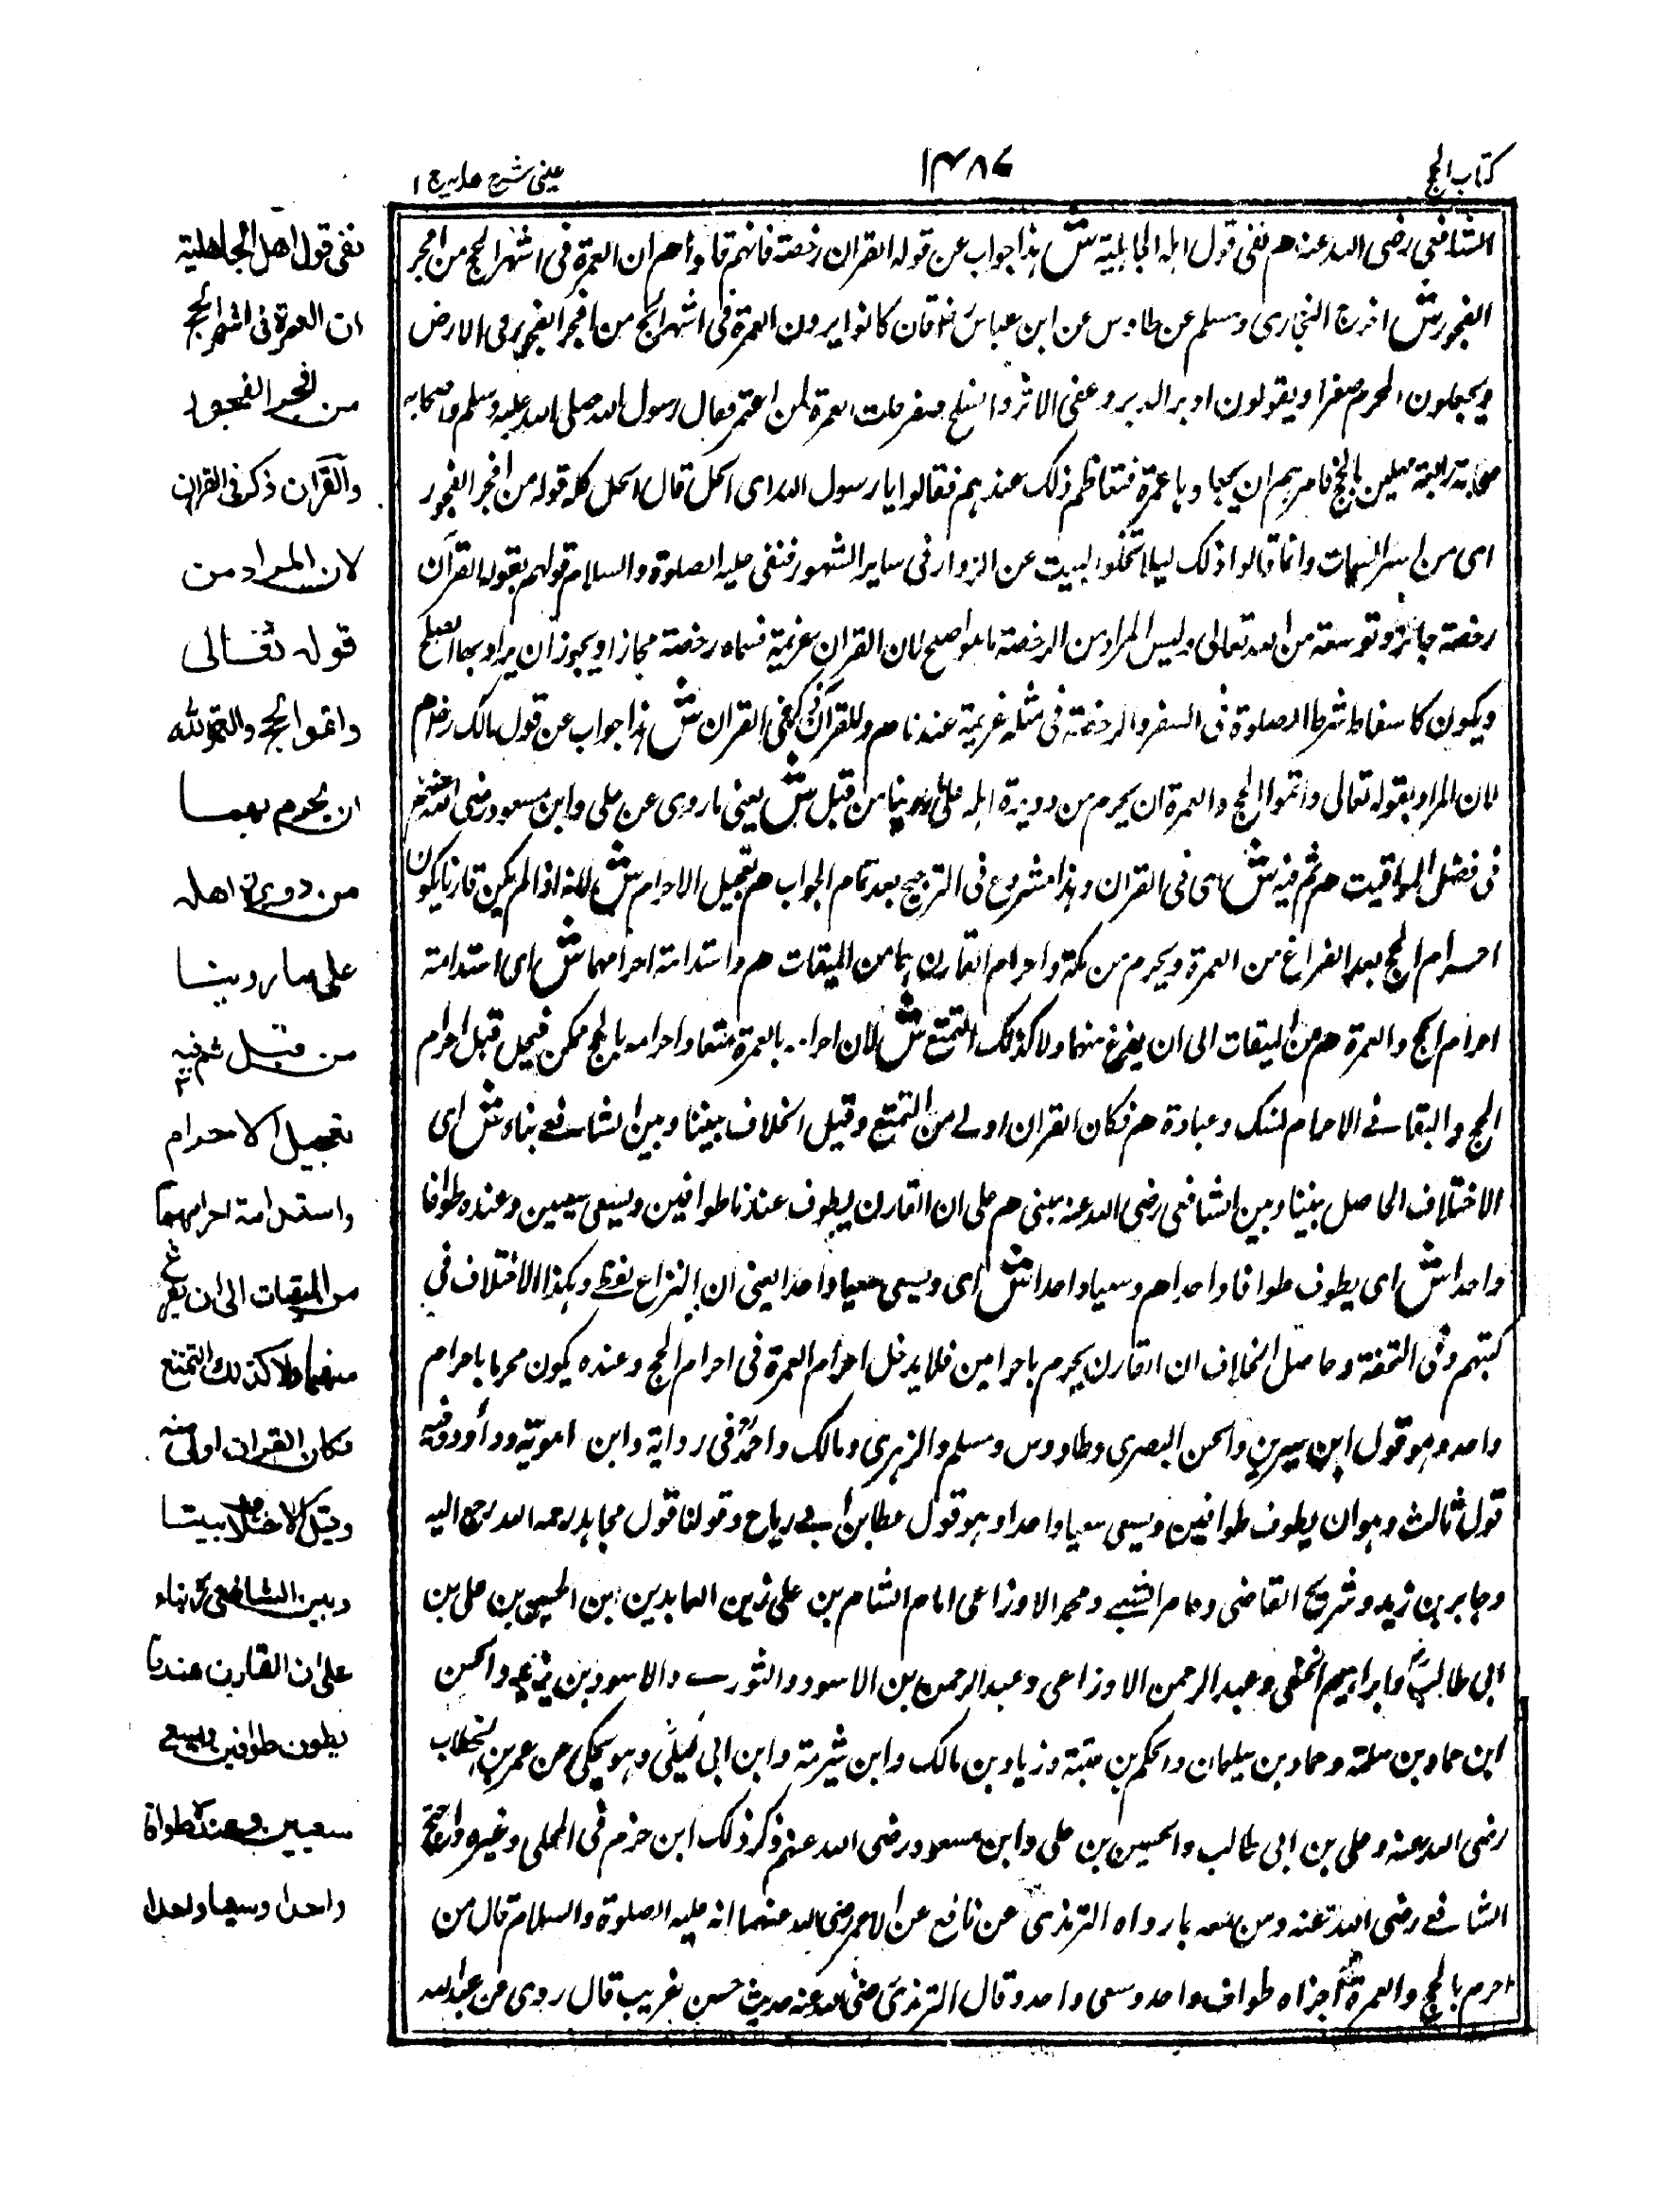 كتاب الحج
١٤٨٧
عينى شرح هدايه ج ١
الشافعى رضى الله عنه هم نفى قول اهل الجاهلية ش هذا جواب عن قوله القران رخصة فانهم قالوا هم ان العمرة فى اشهر الحج من افجر
الفجور ش اخرج البخارى ومسلم عن طاوس عن ابن عباس قال كانوا يرون العمرة فى اشهر الحج من افجر الفجور فى الارض
ويجعلون المحرم صفرا ويقولون اذا برا الدبر وعفى الاثر وانسلخ صفر حلت العمرة لمن اعتمر فقال رسول الله صلى الله عليه وسلم واصحابه
صحابته رابعة مهلين بالحج فامرهم ان يجعلوها عمرة فتعاظم ذلك عندهم فقالوا يا رسول الله اى الحل قال الحل كله قوله من افجر الفجور
اى من اسوء السيئات وانما قالوا ذلك ليلا تخلوا لبيت عن الزوار فى ساير الشهور فنفى عليه الصلوة والسلام قولهم بقوله القرآن
رخصة جائزة وتوسعة من الله تعالى وليس المراد من الرخصة ما هو اصطلح لان القران عزيمة فسماه رخصة مجازا ويجوز ان يراد بها المصطلح
ويكون كاسقاط شرط الصلوة فى السفر والرخصة فى مثله عزيمة عندنا هم وللقرآن ذكر فى القران ش هذا جواب عن قول مالك رضه هم
لان المراد بقوله تعالى واتموا الحج والعمرة ان يحرم من دويرة اهله على ما روينا من قبل ش يعنى ما روى عن على وابن مسعود رضى الله عنهم
فى فضل المواقيت هم ثم فيه ش اى فى القران وهذا مشروع فى الترجيح بعد تمام الجواب هم تعجيل الاحرام ش لانه اذا لم يكن قارنا يكون
احرام الحج بعد الفراغ من العمرة ويحرم من مكة واحرام القارن بهما من الميقات هم واستدامة احرامهما ش اى استدامة
احرام الحج والعمرة هم من الميقات الى ان يفرغ منهما ولا كذلك التمتع ش لان احرامه بالعمرة متعا واحرامه بالحج ممكن فيحل قبل احرام
الحج والبقاء فى الاحرام لنسك وعبادة هم فكان القران اولى من التمتع وقيل الخلاف بيننا وبين الشافعى بناء ش اى
الاختلاف الحاصل بيننا وبين الشافعى رضى الله عنه مبنى هم على ان القارن يطوف عندنا طوافين ويسعى سعيين وعنده طوافا
واحدا ش اى يطوف طوافا واحدا هم وسعيا واحدا ش اى ويسعى سعيا واحدا يعنى ان النزاع لفظى وهكذا الاختلاف فى
كتبهم وفى التحفة وحاصل الخلاف ان القارن يحرم باحرامين فلا يدخل احرام العمرة فى احرام الحج وعنده يكون محرما باحرام
واحد وهو قول ابن سيرين والحسن البصرى وطاووس ومسلم والزهرى ومالك واحمد فى رواية وابن اهويّه وداود وفيه
قول ثالث وهو ان يطوف طوافين ويسعى سعيا واحدا وهو قول عطا بن ابى رباح وقولنا قول مجاهد رحمه الله رجع اليه
وجابر بن زيد وشريح القاضى وعامر الشعبى ومحمد الاوزاعى امام الشام بن على زين العابدين ابن الحسين بن على بن
ابى طالب وابراهيم النخعى وعبد الرحمن الاوزاعى وعبد الرحمن بن الاسود والثورى والاسود بن يزيد والحسن
ابن حماد بن سلمة وحماد بن سليمان والحكم بن عتبة وزياد بن مالك وابن شبرمة وابن ابى ليلى وهو يحكى عن عمر بن الخطاب
رضى الله عنه وعلى بن ابى طالب والحسين بن على وابن مسعود رضى الله عنهم ذكر ذلك ابن حزم فى المحلى وغيره واحتج
الشافعى رضى الله عنه ومن معه بما رواه الترمذى عن نافع عن ابن عمر رضى الله عنهما انه عليه الصلوة والسلام قال من
احرم بالحج والعمرة اجزاه طواف واحد وسعى واحد وقال الترمذى رضى الله عنه حديث حسن غريب قال روى عن عبد الله
نفى قول اهل الجاهلية
ان العمرة فى اشهر الحج
من افجر الفجور
والقرآن ذكر فى القران
لان المراد من
قوله تعالى
واتموا الحج والعمرة لله
ان يحرم بهما
من دويرة اهله
على ما روينا
من قبل ثم فيه
تعجيل الاحرام
واستدامة احرامهما
من الميقات الى ان يفرغ
منهما ولا كذلك التمتع
فكان القران اولى منه
وقيل الاختلاف بيننا
وبين الشافعى رح بناء
على ان القارن عندنا
يطوف طوافين ويسعى
سعيين وعنده طوافا
واحدا وسعيا واحدا